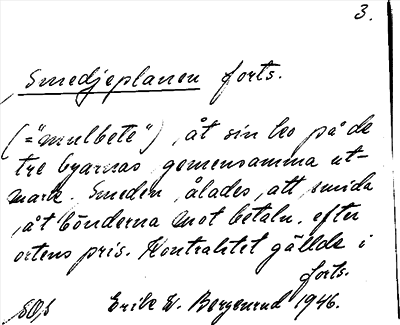 3.
Smedjeplanen forts.
(="mulbete"), åt sin ko på de
tre byarnas gemensamma ut-
mark. Smeden, ålades, att, smida
, åt bönderna mot betaln. efter
ortens pris. Kontraktet gällde i
forts.
Erik W. Bergenrud 1946.